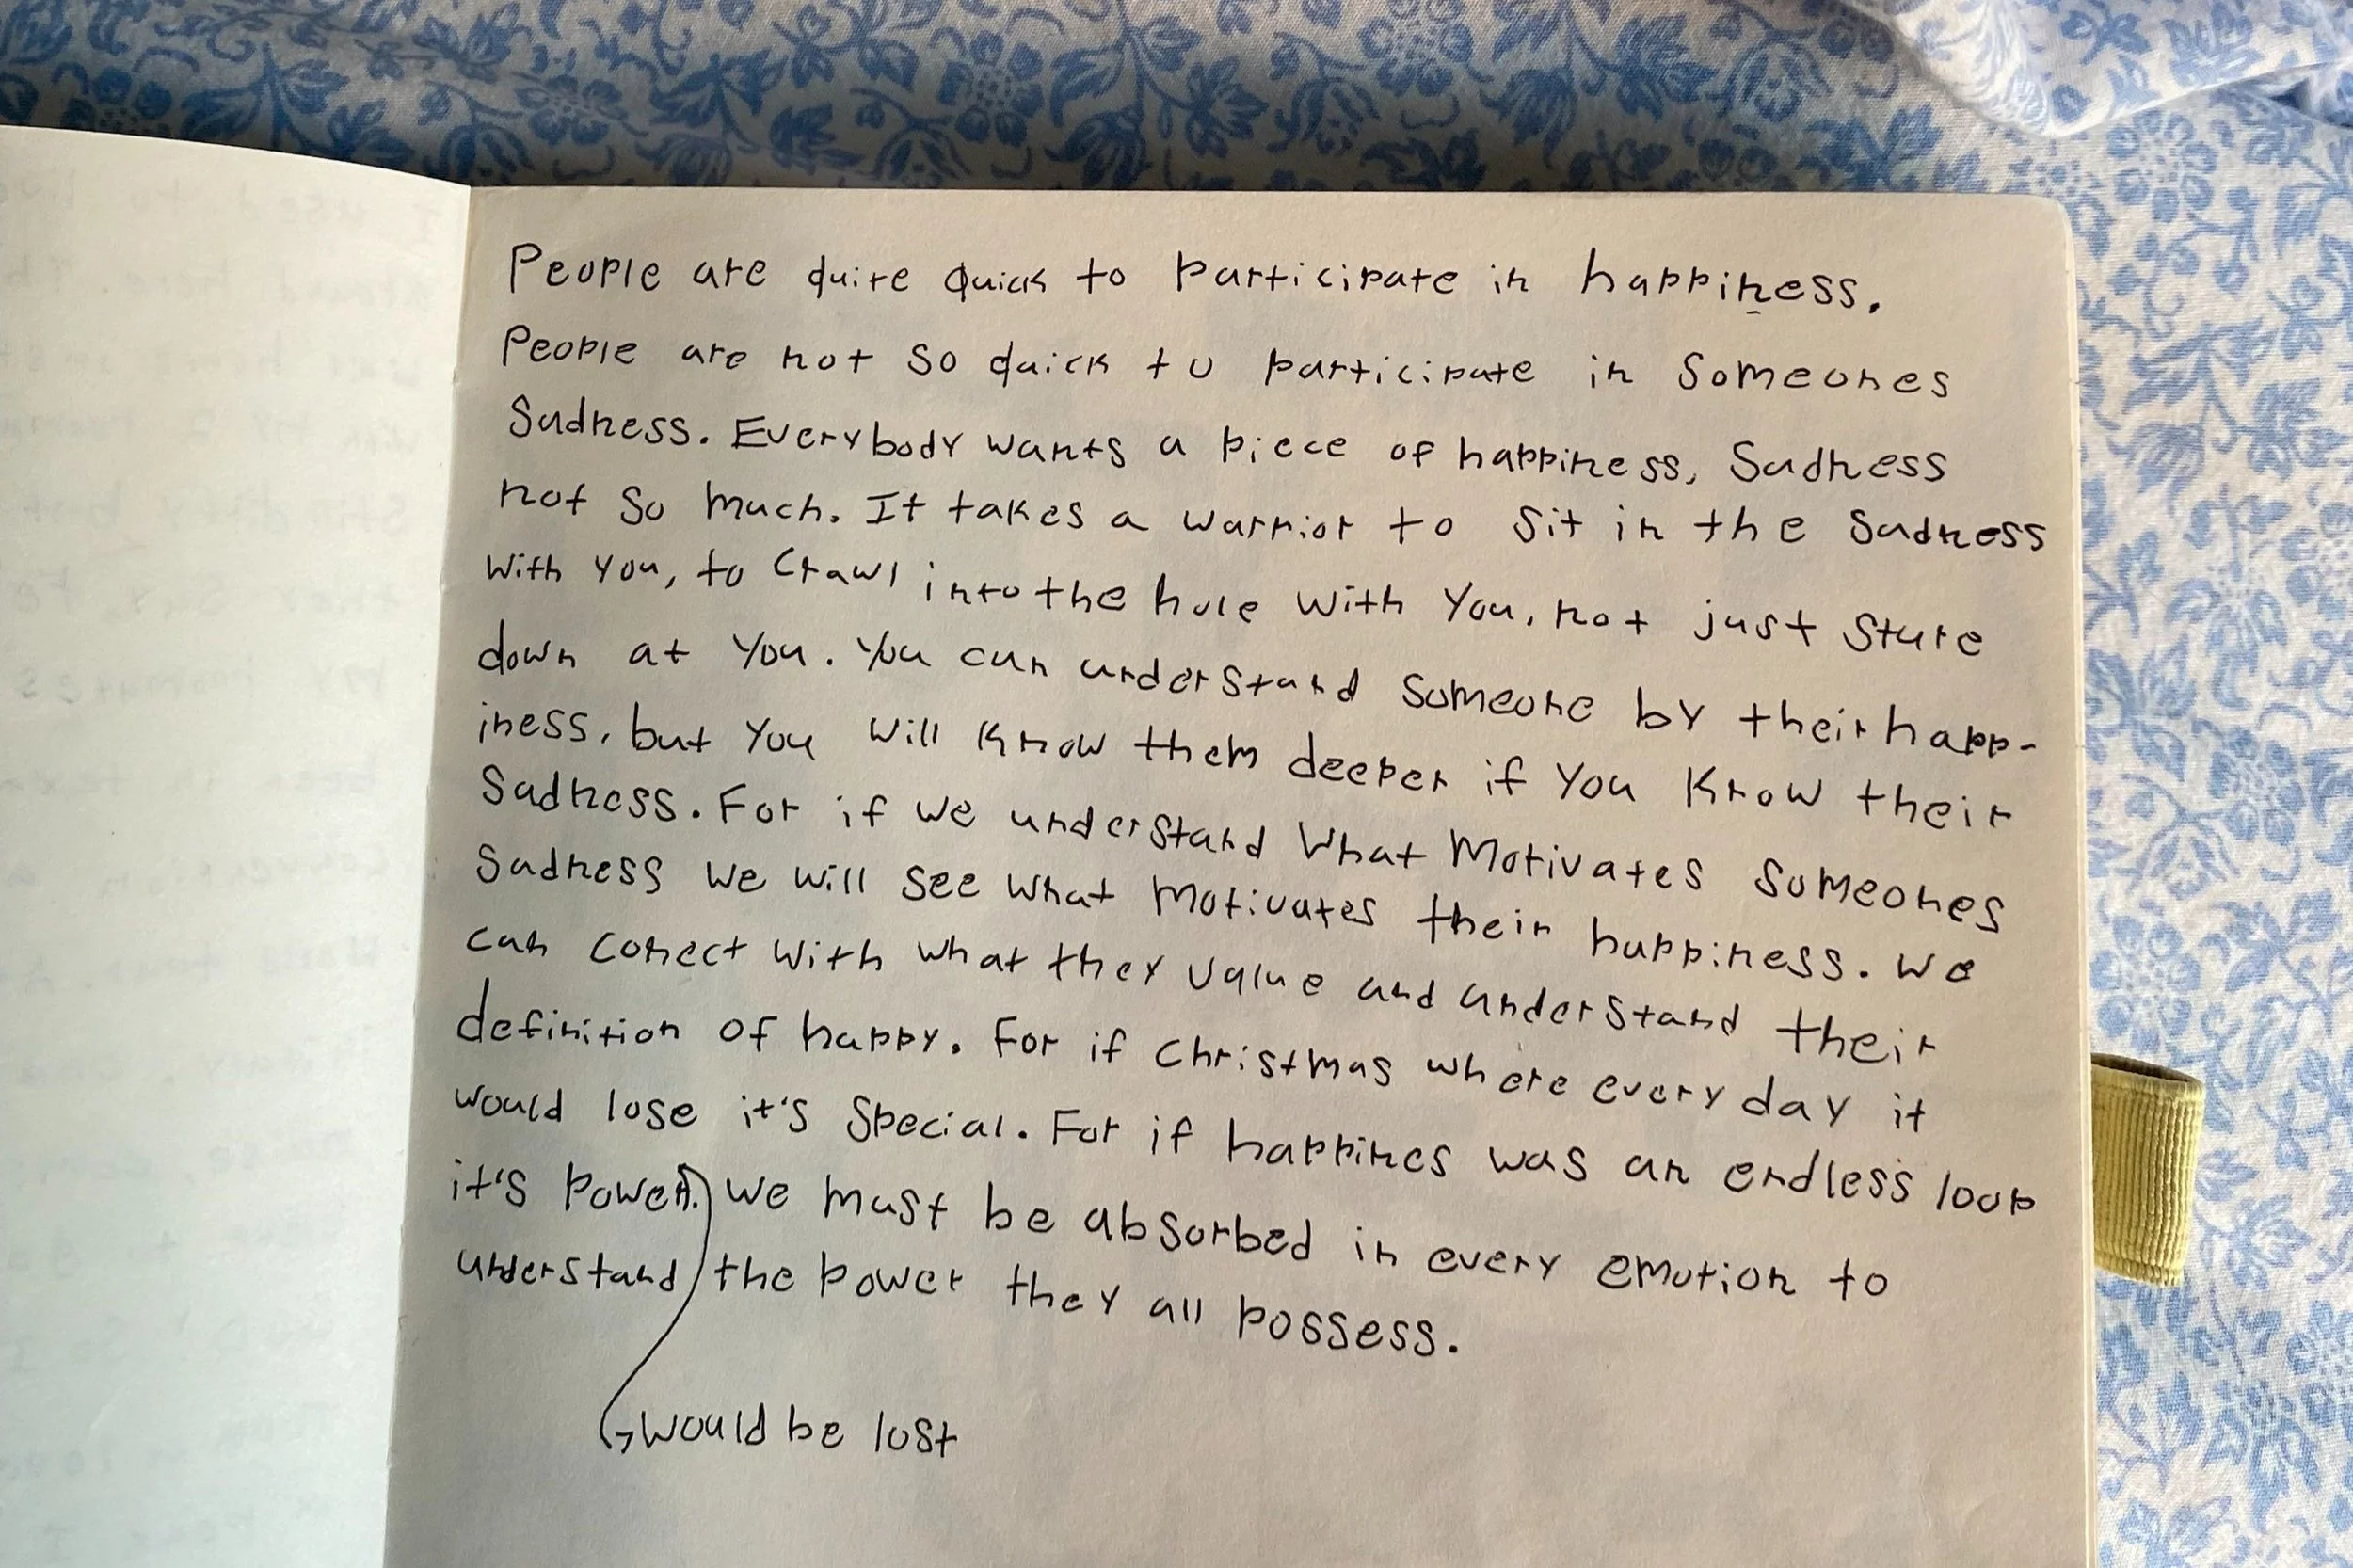 People are quite quick to participate in happiness.
People are not so quick to participate in someones
Sadness. Everybody wants a piece of happiness, Sadness
not so much. It takes a warrior to sit in the sadness
with you, to crawl into the hole with you, not just stare
down at you. You can understand someone by their happ-
iness, but you will know them deeper if you know their
Sadness. For if we understand what motivates someones
sadness we will see what motivates their happiness. We
can conect with what they value and understand their
definition of happy. For if christmas where every day it
would lose it's special. For if happines was an endless loop
it's power. we must be absorbed in every emotion to
understand the power they all possess.
would be lost